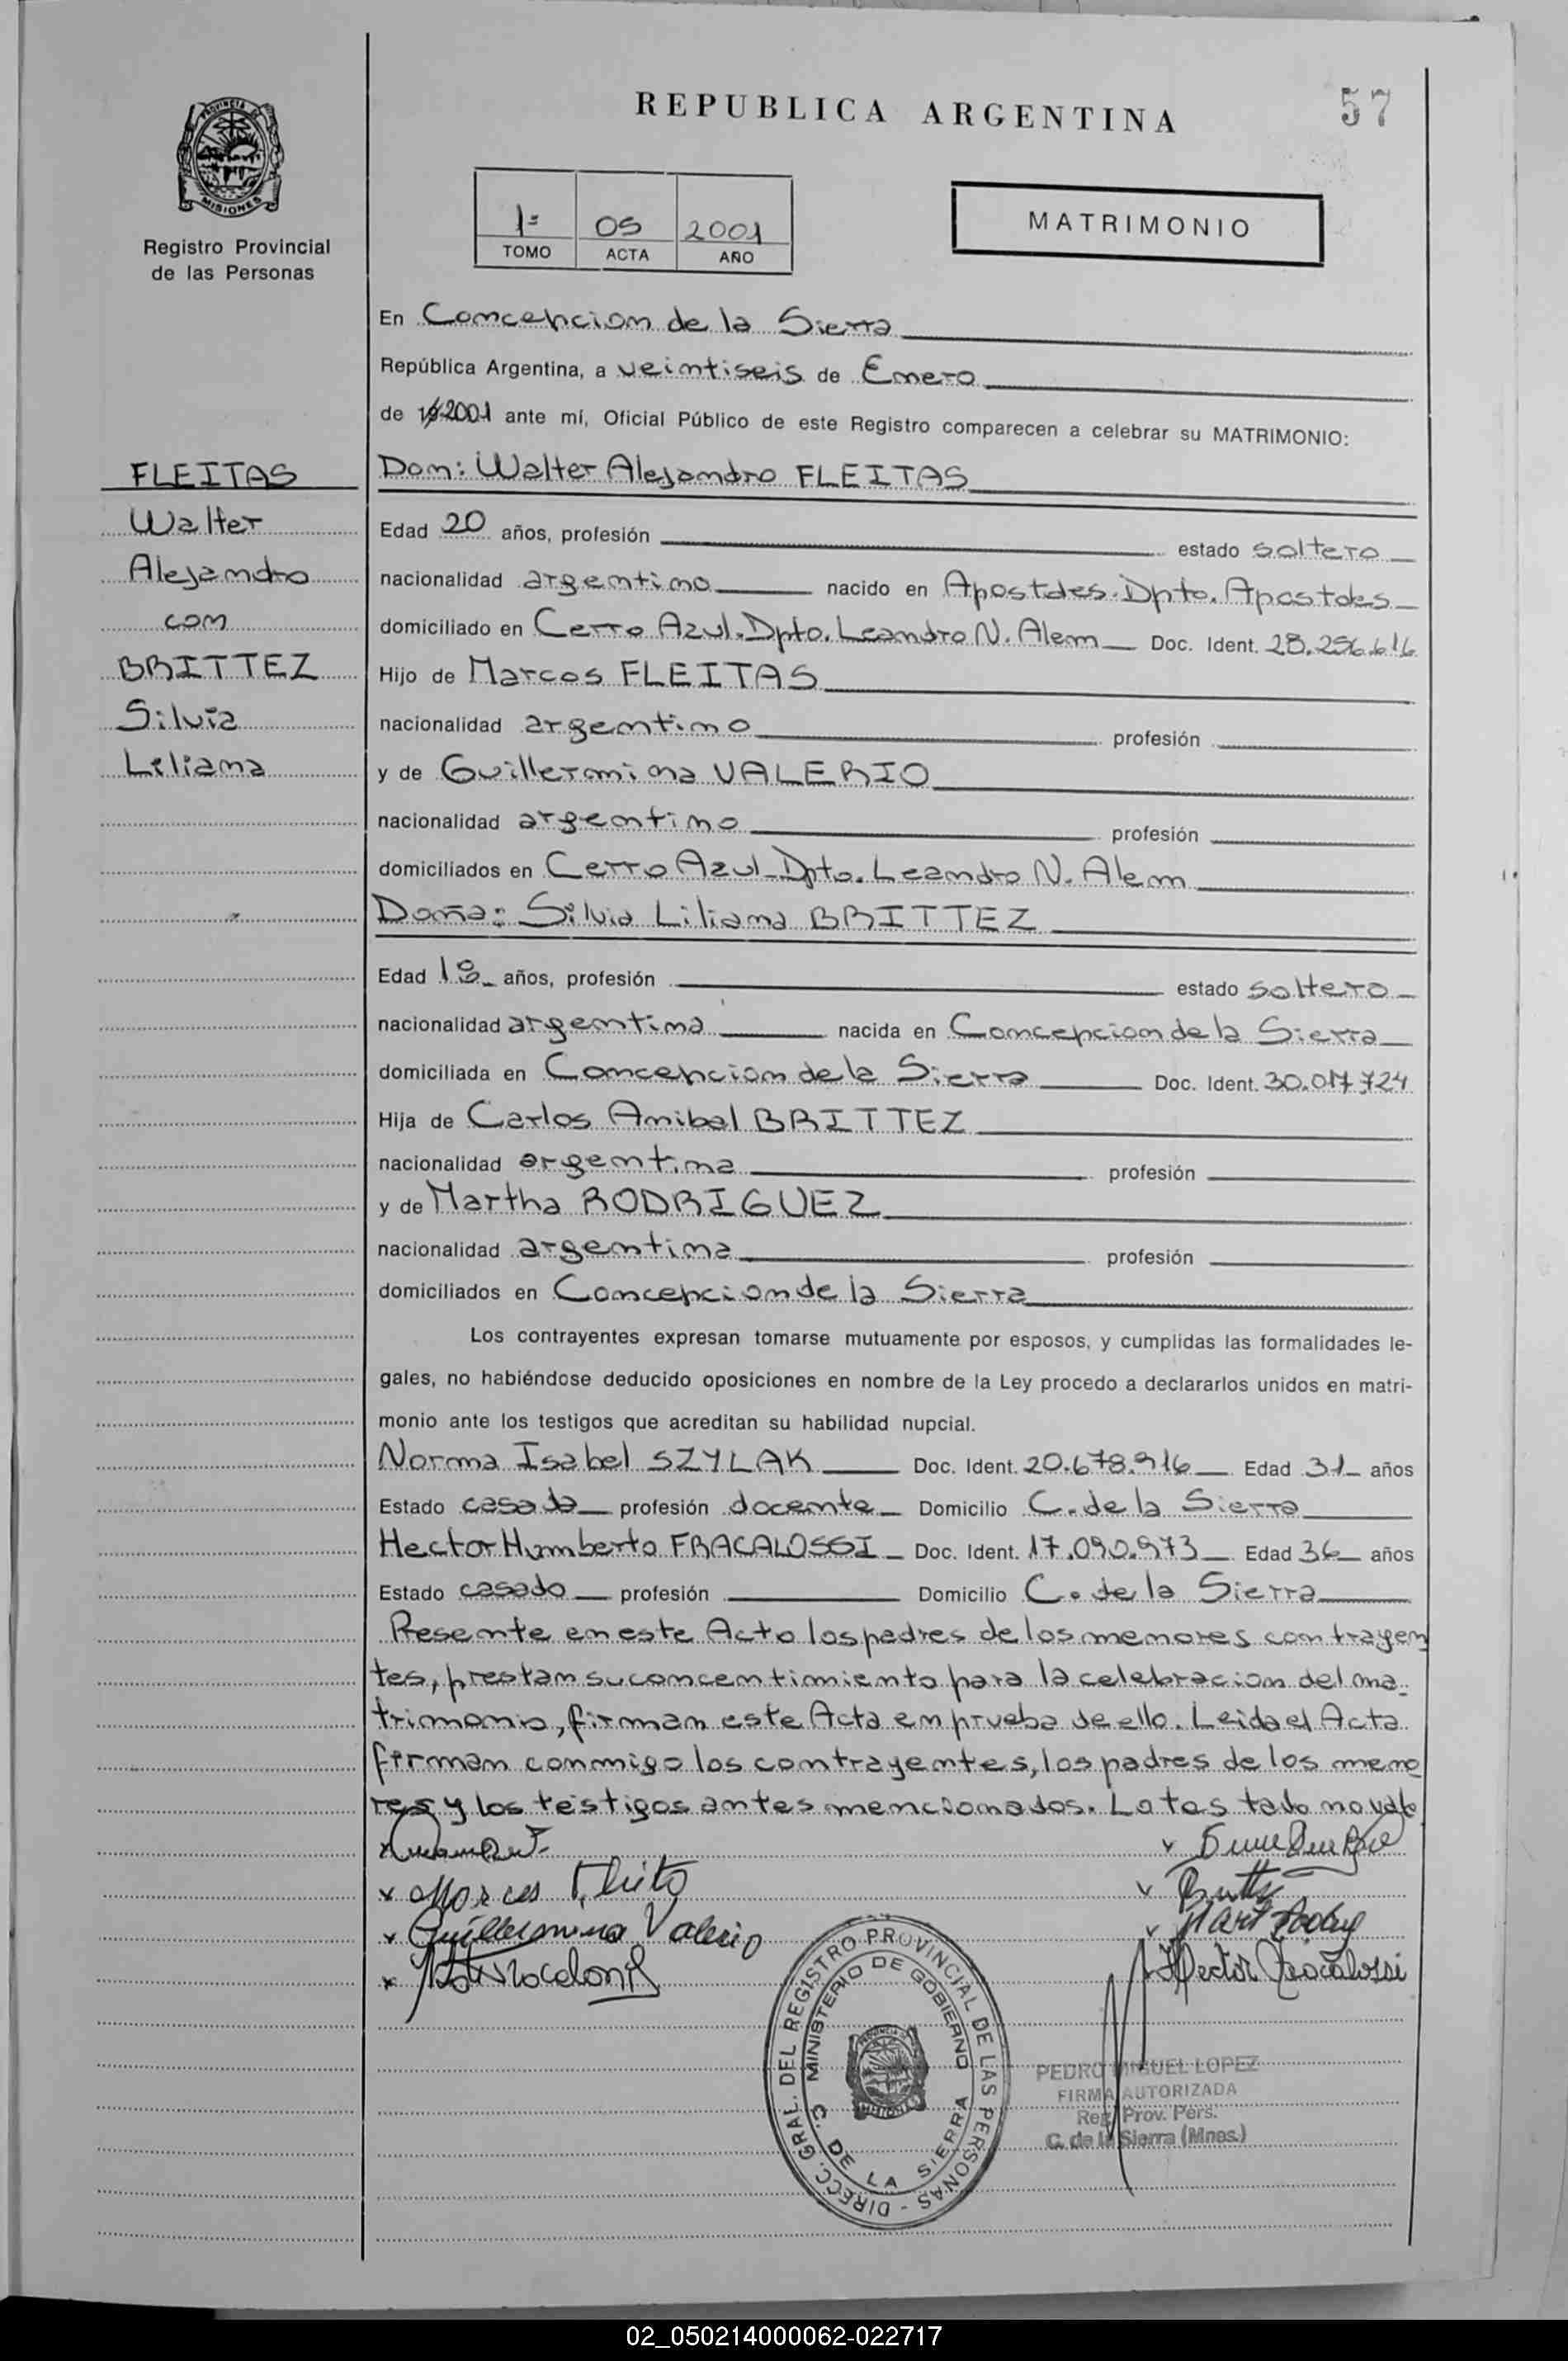 REPUBLICA ARGENTINA
57
PROVINCIA DE
MISIONES
Registro Provincial
de las Personas
1º 05 2001
TOMO ACTA AÑO
MATRIMONIO
En Concepcion de la Sierra
República Argentina, a veintiseis de Enero
de 19 2001 ante mí, Oficial Público de este Registro comparecen a celebrar su MATRIMONIO:
FLEITAS
Walter
Alejandro
con
BRITTEZ
Silvia
Liliana
Don: Walter Alejandro FLEITAS
Edad 20 años, profesión estado soltero
nacionalidad argentino nacido en Apostoles. Dpto. Apostoles
domiciliado en Cerro Azul. Dpto. Leandro N. Alem Doc. Ident. 28.256.616
Hijo de Marcos FLEITAS
nacionalidad argentino profesión
y de Guillermina VALERIO
nacionalidad argentino profesión
domiciliados en Cerro Azul-Dpto. Leandro N. Alem
Doña: Silvia Liliana BRITTEZ
Edad 18 años, profesión estado soltero
nacionalidad argentina nacida en Concepcion de la Sierra
domiciliada en Concepcion de la Sierra Doc. Ident. 30.017.724
Hija de Carlos Anibal BRITTEZ
nacionalidad argentina profesión
y de Martha RODRIGUEZ
nacionalidad argentina profesión
domiciliados en Concepcion de la Sierra
Los contrayentes expresan tomarse mutuamente por esposos, y cumplidas las formalidades le-
gales, no habiéndose deducido oposiciones en nombre de la Ley procedo a declararlos unidos en matri-
monio ante los testigos que acreditan su habilidad nupcial.
Norma Isabel SZYLAK Doc. Ident. 20.678.916 Edad 31 años
Estado casada profesión docente Domicilio C. de la Sierra
Hector Humberto FRACALOSSI Doc. Ident. 17.090.973 Edad 36 años
Estado casado profesión Domicilio C. de la Sierra
Presente en este Acto los padres de los menores contrayen
tes, prestan su concentimiento para la celebracion del ma-
trimonio, firman este Acta en prueba de ello. Leida el Acta
firman conmigo los contrayentes, los padres de los meno
res y los testigos antes mencionados. Lo tes tado no vale
Marcos Fleita
Guillermina Valerio
Hector Fracalossi
DIRECC. GRAL. DEL REGISTRO PROVINCIAL DE LAS PERSONAS -
MINISTERIO DE GOBIERNO
C. DE LA SIERRA
PEDRO MIGUEL LOPEZ
FIRMA AUTORIZADA
Reg. Prov. Pers.
C. de la Sierra (Mnes.)
02_050214000062-022717